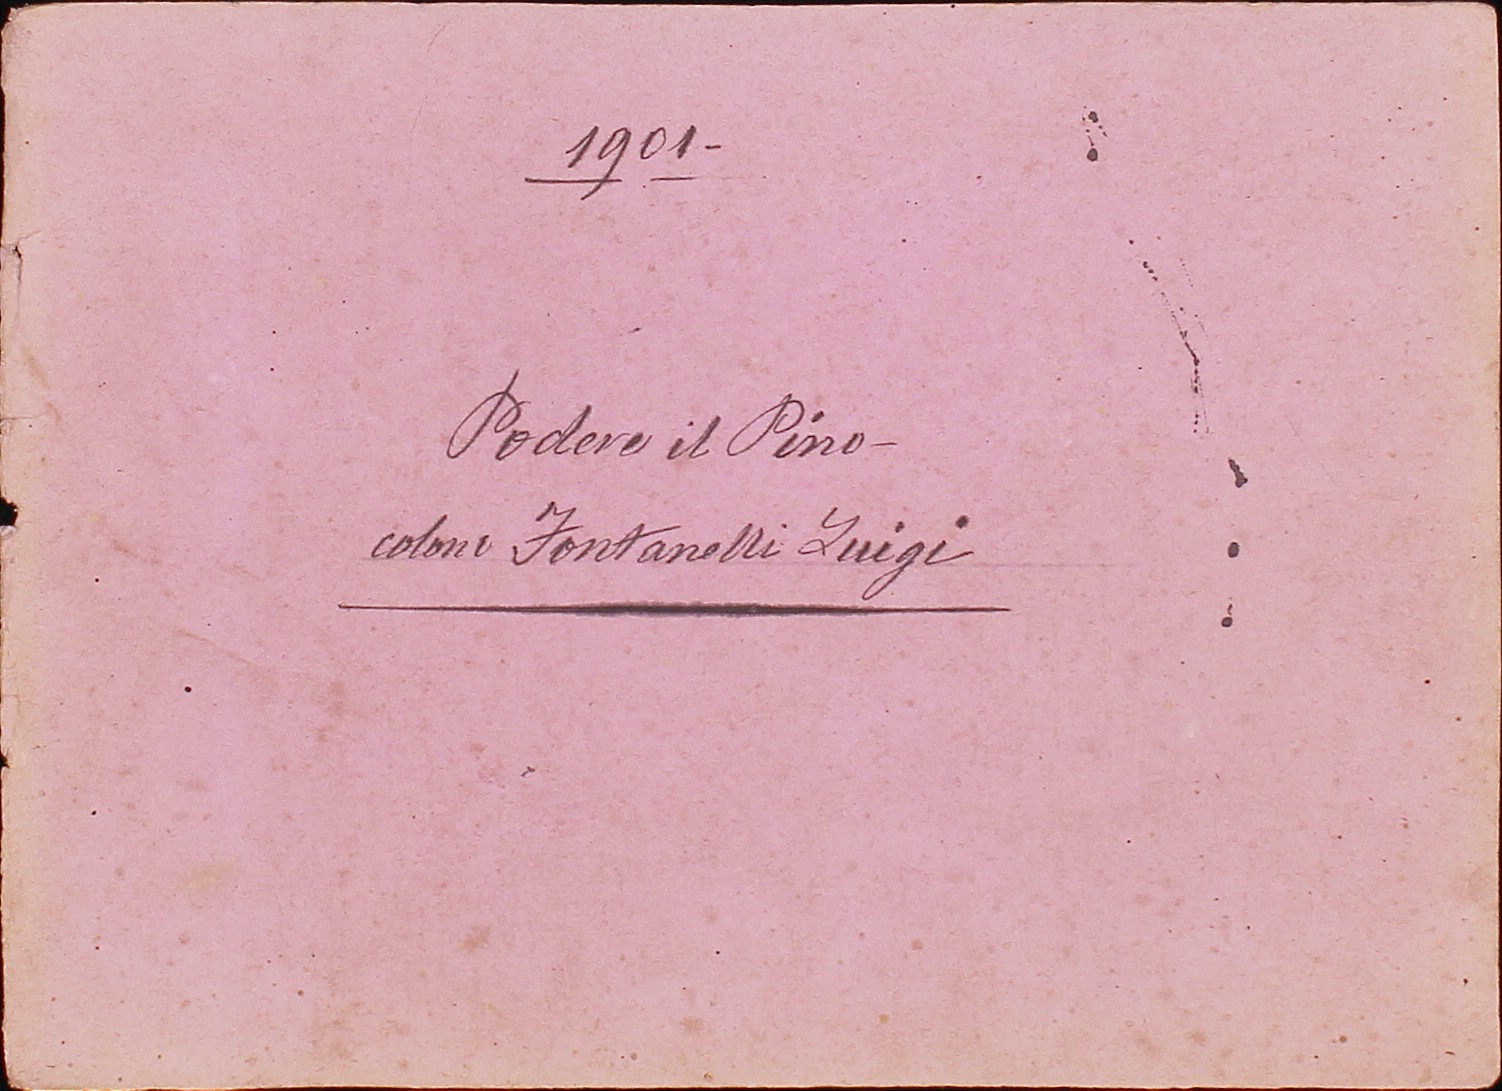 1901-
Podere il Pino-
colono Fontanelli Luigi